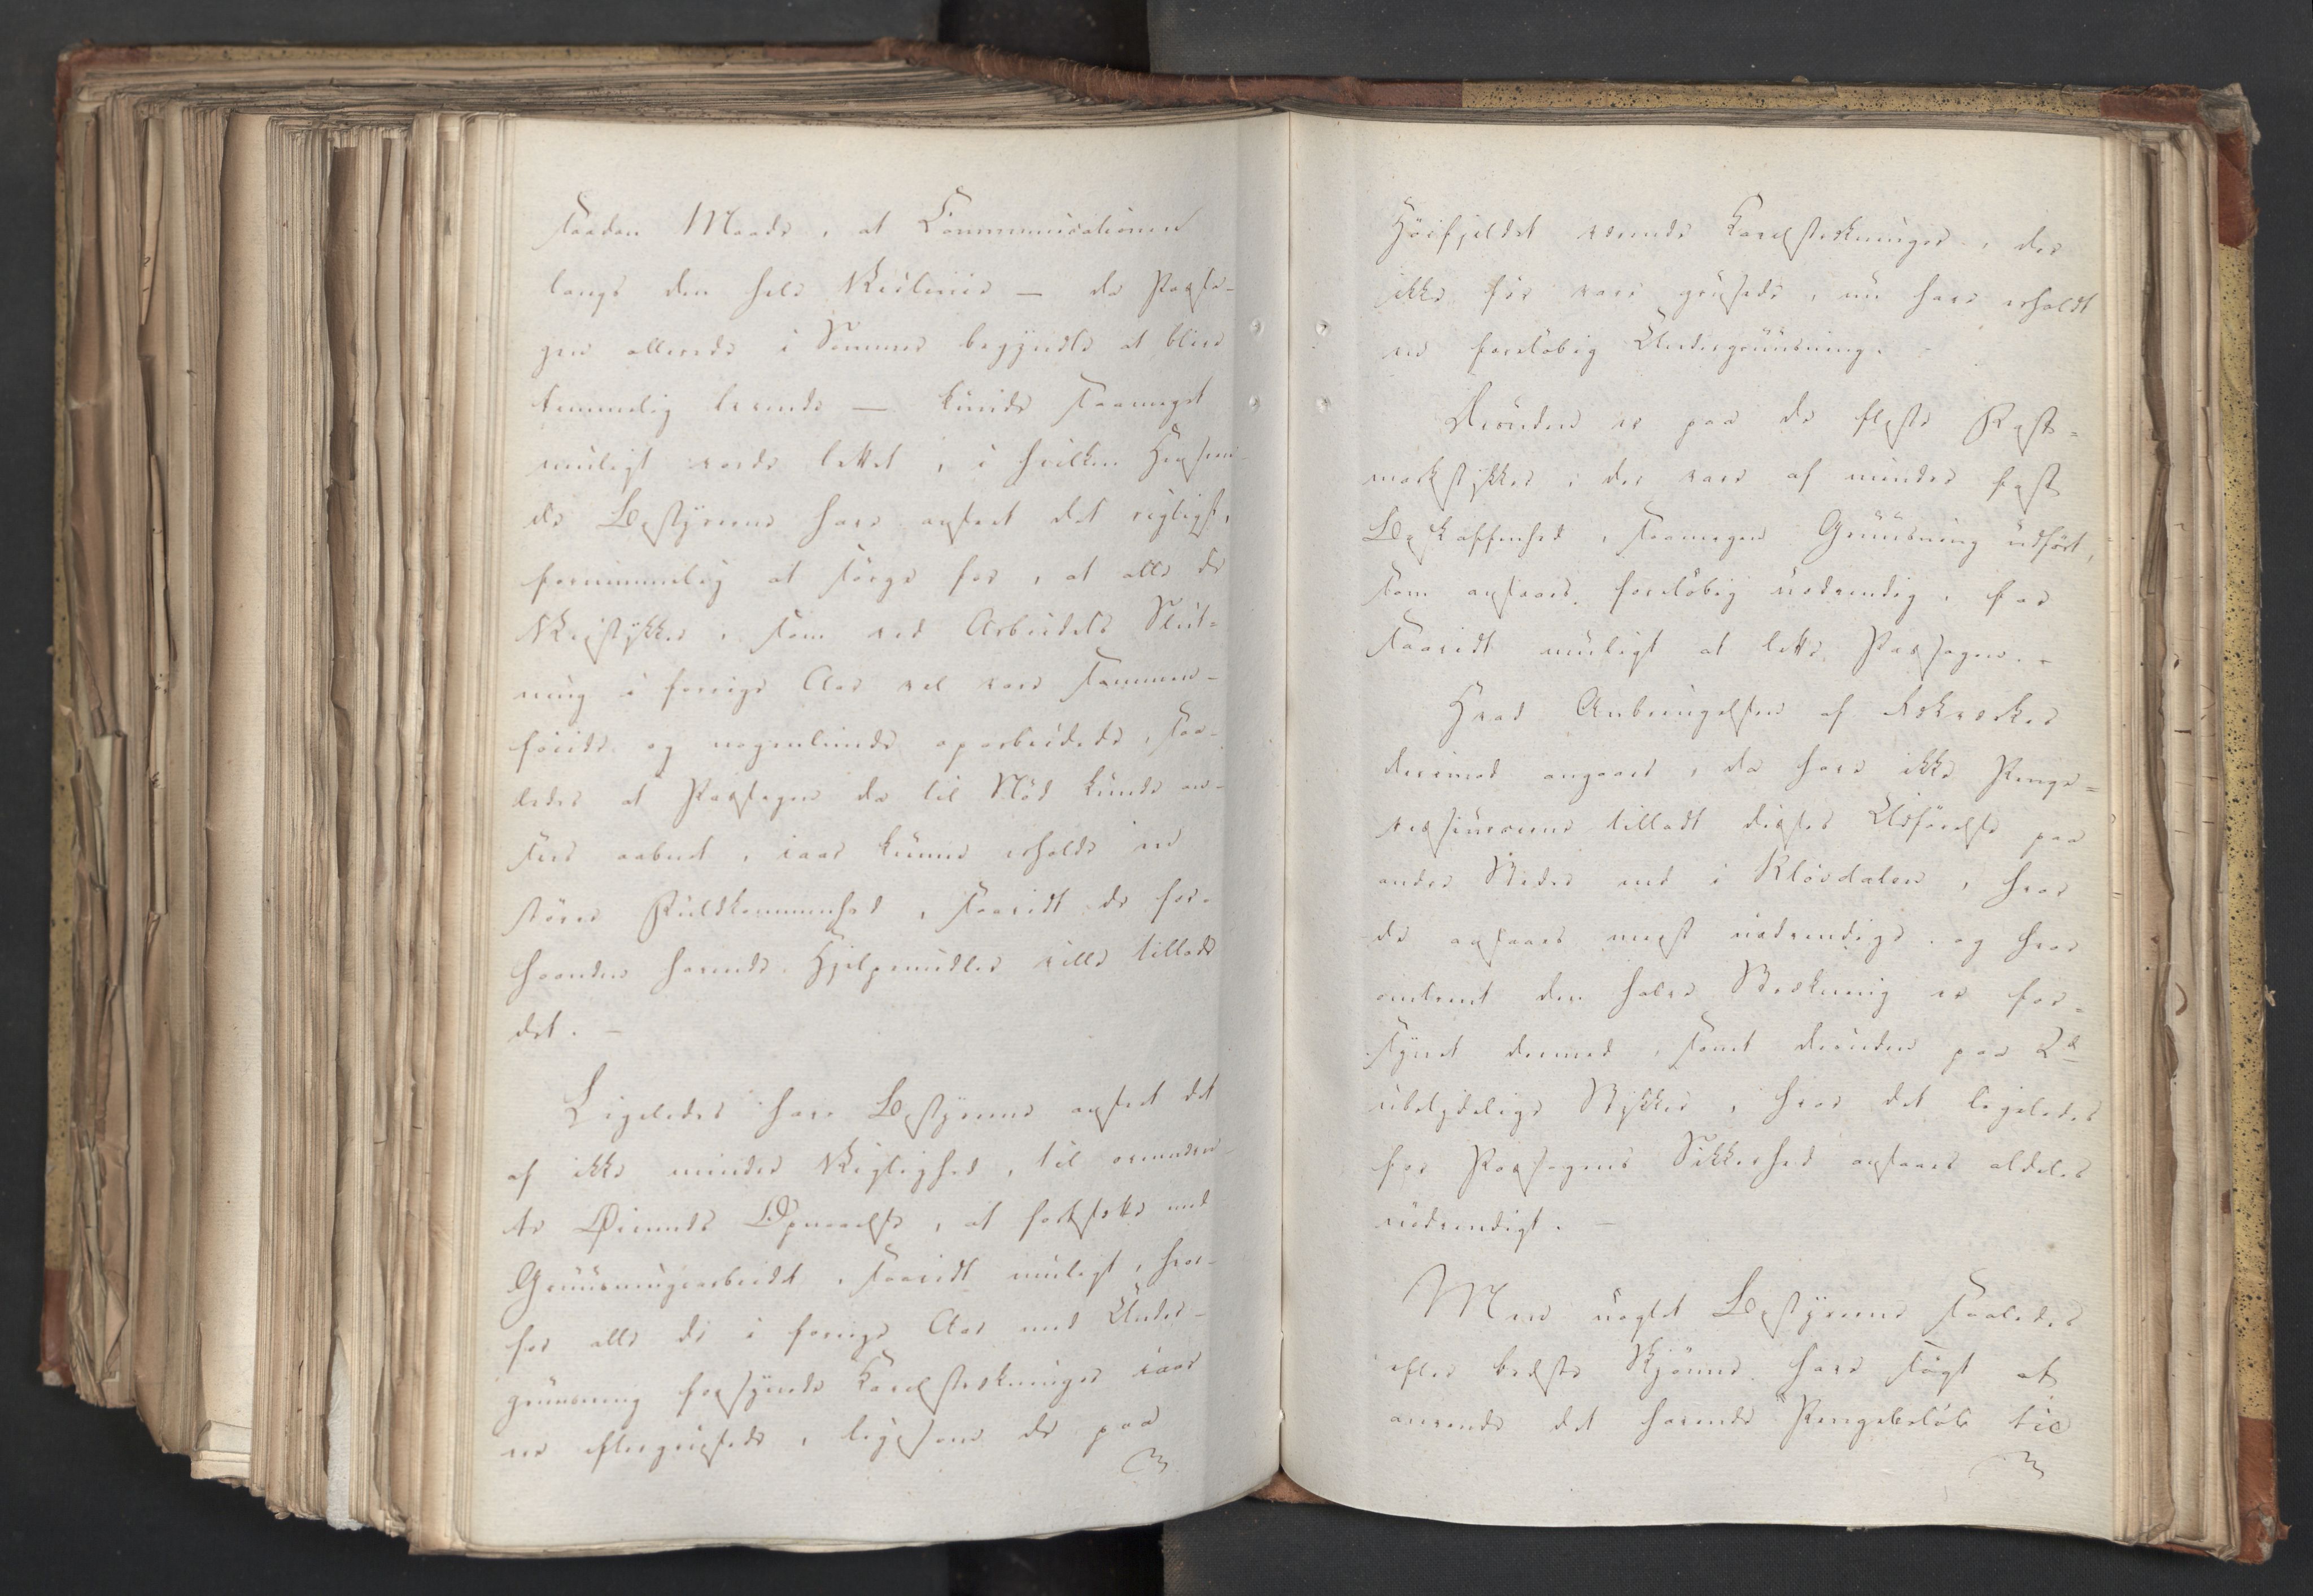 saadan Maade, at Communicationen
langs den hele Veilinie — da Passa-
gen allerede i Sommer begyndte at blive
temmelig levende — kunde saameget
muligt vorde lettet, i hvilken Hensee-
de Bestyrerne have anseet det rigtigst,
fornemmelig at sørge for, at alle de
Veistykker, som ved Arbeidets Slut-
ning i forrige Aar vel vare sammen-
føiede og nogenlunde oparbeidede, saa-
ledes at Passagen da til Nød kunde an-
sees aabnet, iaar kunne erholde en
større Fuldkommenhed, saavidt de for-
haanden havende Hjelpemidler ville tillade
det. —
Ligeledes have Bestyrerne anseet det
af ikke mindre Vigtighed, til ovennævn-
te Øiemeds Opnaaelse, at fortsætte med
Gruusningsarbeidet, saavidt muligt, hvor-
for alle de i forrige Aar med Under-
gruusning forsynede Kavelstrækninger iaar
ere eftergrusede, ligesom de paa
Höifjeldet værende Kavelstrækninger, der
ikke før vare grusede, nu have erholdt
en foreløbig Undergruusning. -
Desuden er paa de fleste Rest-
markstykker, der vare af mindre fast
Beskaffenhed, saamegen Gruusning udført,
som ansaaes foreløbig nødvendig, for
saavidt muligt at lette Passagen. -
Hvad Anbringelsen af Rækværker
derimod angaaer, da have ikke Penge-
ressourcerne tilladt disses Udførelse paa
andre Steder end i Kløvdalen, hvor
de ansaaes meest nødvendige og hvor
omtrent den halve Strækning er for-
synet dermed, samt desuden paa 2de
ubetydelige Stykker, hvor det ligeledes
for Passagens Sikkerhed ansaaes aldeles
nødvendigt. —
Men uagtet Bestyrerne saaledes
efter bedste Skjønne have søgt at
anvende det havende Pengebeløb til